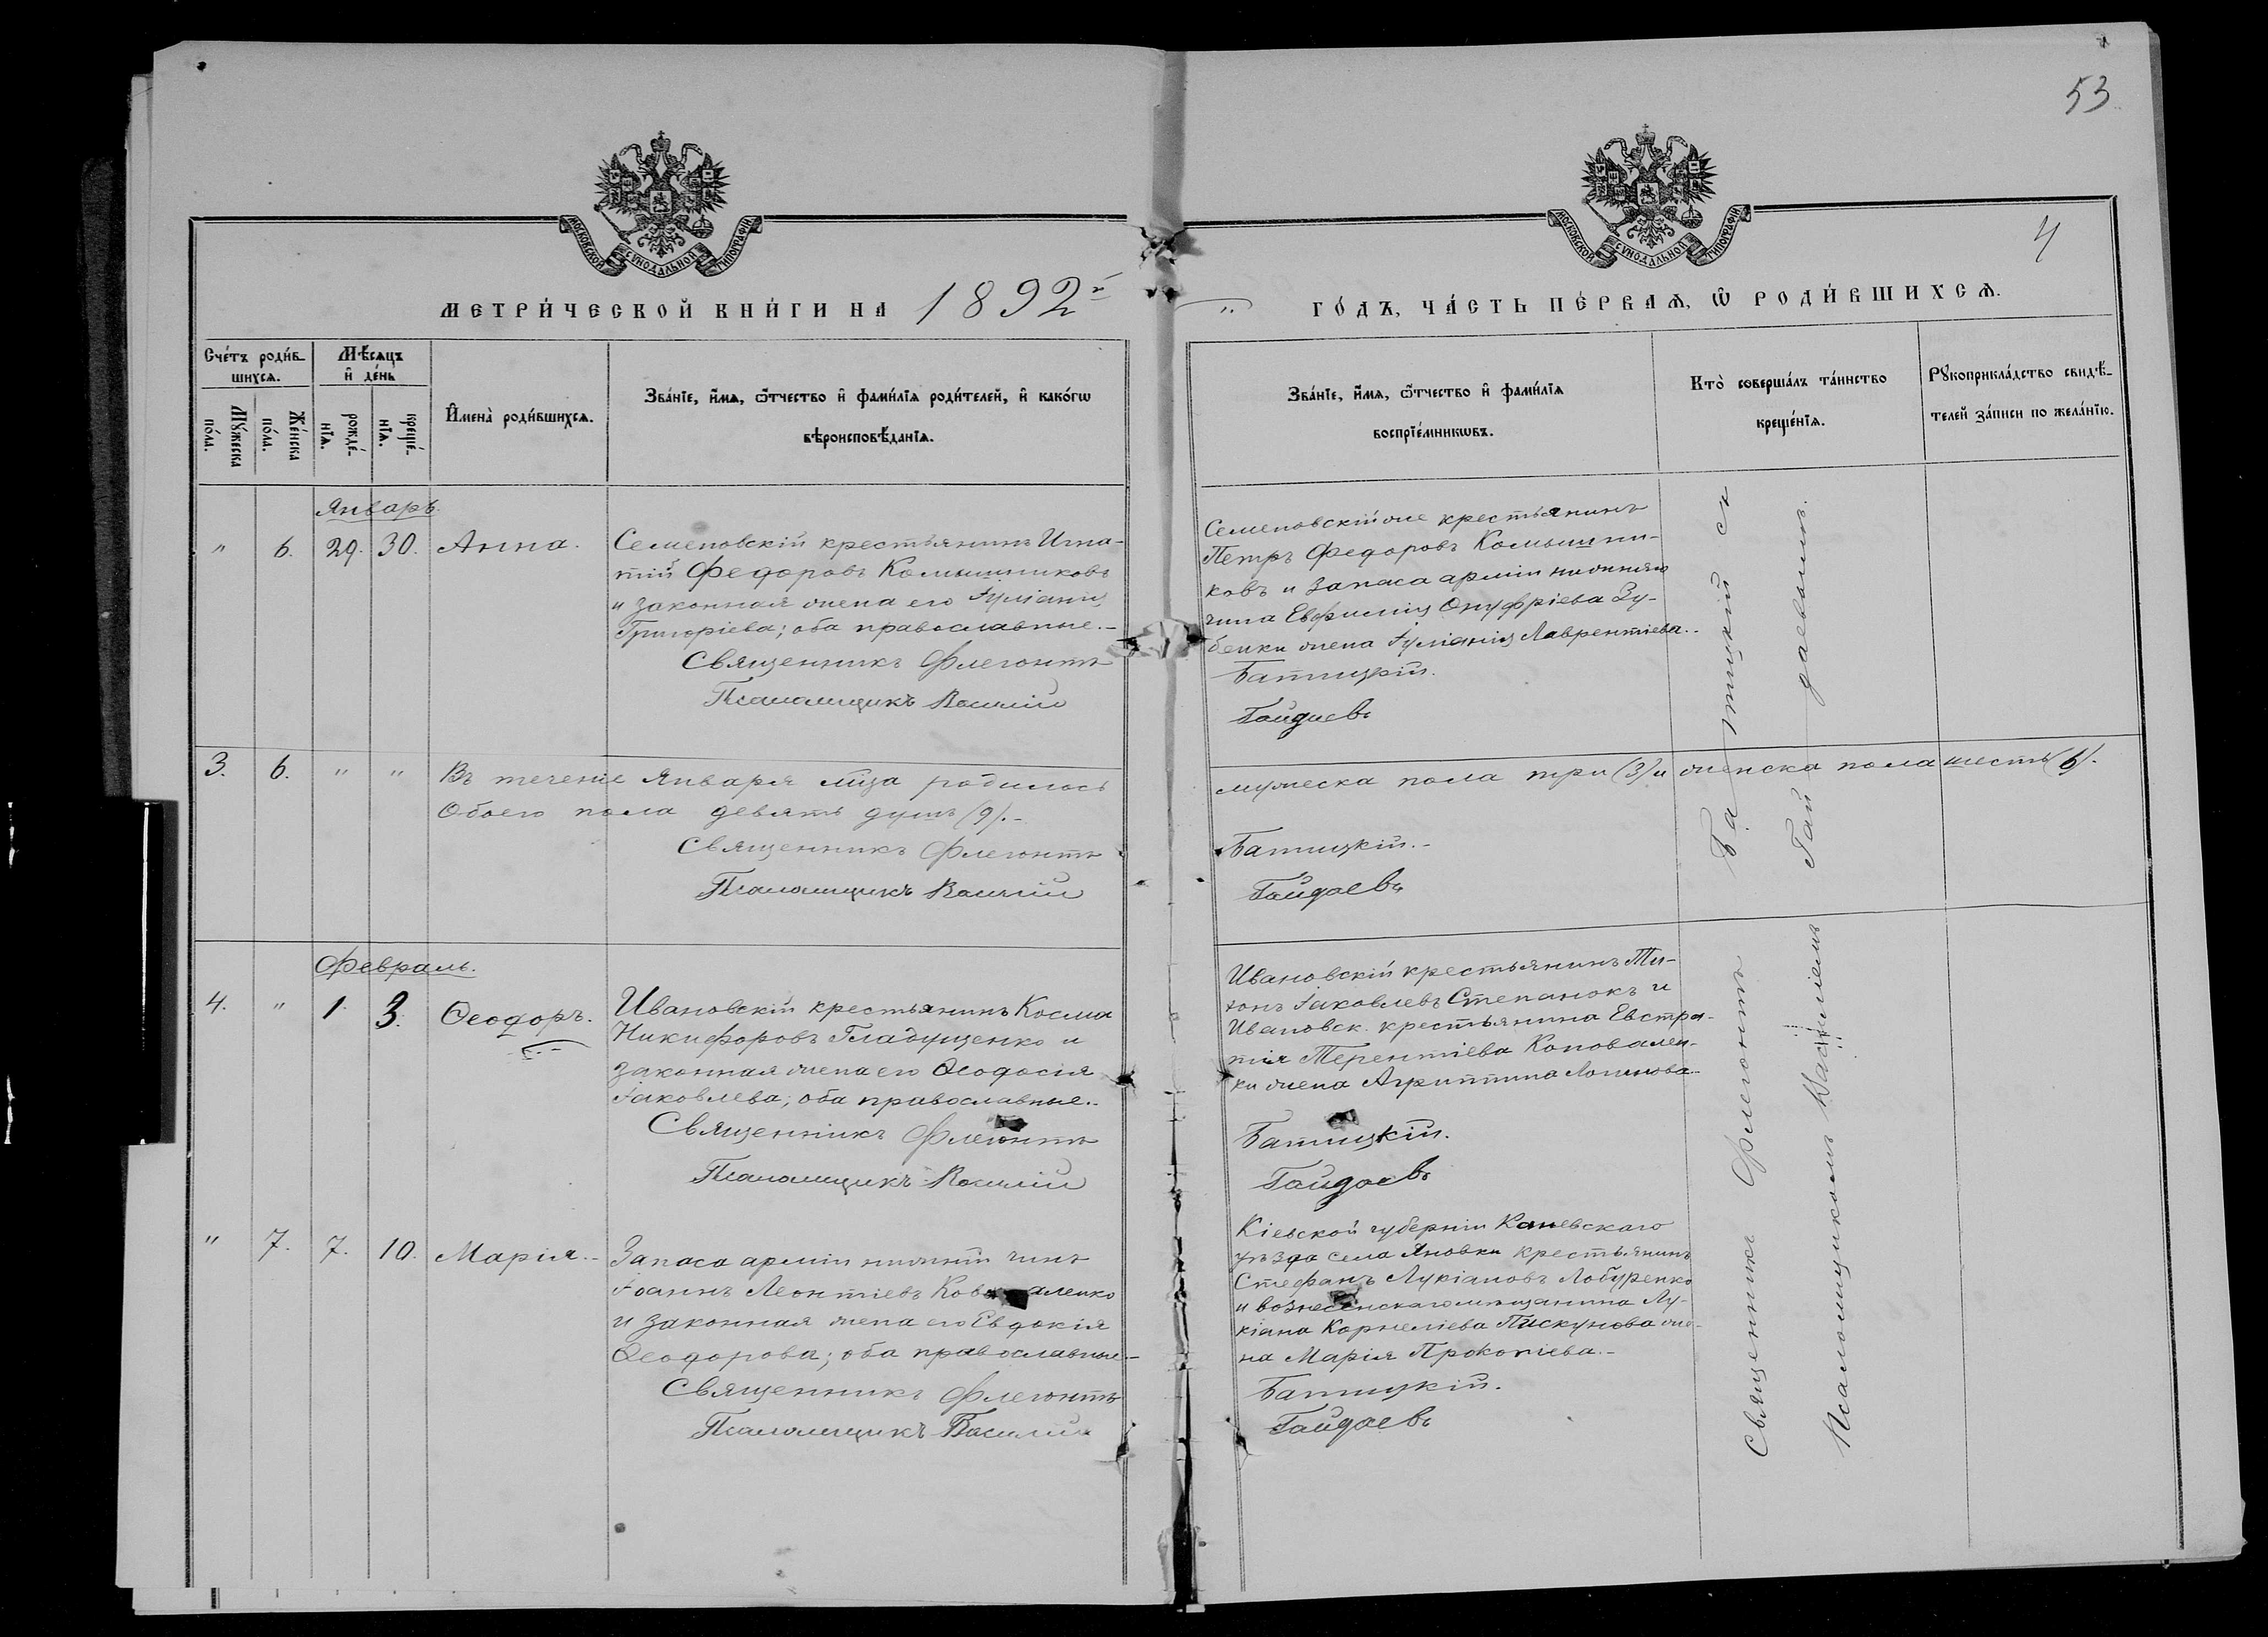 53
МОСКОВСКОЙ СѴНОДАЛЬНОЙ ТИПОГРАФІИ
МОСКОВСКОЙ СѴНОДАЛЬНОЙ ТИПОГРАФІИ
4
МЕТРИ́ЧЕСКОЙ КНИ́ГИ НА 1892й
ГО́ДЪ, ЧА́СТЬ ПЕ́РВАѦ, Ѿ РОДИ́ВШИХСѦ.
Сче́тъ роди́в-
шихсѧ.
Мꙋ́жеска
по́ла.
Же́нска
по́ла.
Мѣ́сѧцъ
и҆ де́нь
рожде́-
нїѧ.
креще́-
нїѧ.
И҆мена̀ роди́вшихсѧ.
Зва́нїе, и҆́мѧ, ѻ҆́тчество и҆ фами́лїѧ роди́телей, и҆ како́гѡ
вѣроисповѣ́данїѧ.
Зва́нїе, и҆́мѧ, ѻ҆́тчество и҆ фами́лїѧ
воспрїе́мникѡвъ.
Кто̀ соверша́лъ та́инство
креще́нїѧ.
Рꙋкоприкла́дство свидѣ́-
телей за́писи по жела́нїю.
Январь.
" 6. 29. 30. Анна.
Семеновскій крестьянинъ Игна-
тій Федоровъ Камышниковъ
и законная жена его Іуліанія
Григоріева; оба православные.-
Священникъ Флегонтъ
Псаломщикъ Василій
Семеновскій же крестьянинъ
Петръ Федоровъ Комышни-
ковъ и запаса арміи нижняго
чина Евфимія Онуфріева Зу-
бенки жена Іуліанія Лаврентіева.
Батицкій.
Гайдаевъ
3. 6. " " Въ теченіе Января м͠ца родилось мужеска пола три (3) и женска пола шесть (6).
Обоего пола девять душъ (9).-
Священникъ Флегонтъ Батицкій.-
Псаломщикъ Василій Гайдаевъ
Февраль.
4. " 1. 3. Ѳеодоръ.
Ивановскій крестьянинъ Косма
Никифоровъ Гладущенко и
законная жена его Ѳеодосія
Іаковлева; оба православные.-
Священникъ Флегонтъ
Псаломщикъ Василій
Ивановскій крестьянинъ Ти-
хонъ Іаковлевъ Степанокъ и
Ивановск. крестьянина Евстра-
тія Терентіева Коновален-
ки жена Агриппина Логинова.-
Батицкій.
Гайдаевъ
" 7. 7. 10. Марія.-
Запаса арміи нижній чинъ
Іоаннъ Леонтіевъ Ков аленко
и законная жена его Евдокія
Ѳеодорова; оба православные.-
Священникъ Флегонтъ
Псаломщикъ Василій
Кіевской губерніи Каневскаго
уѣзда села Яновки крестьянинъ
Стефанъ Лукіановъ Лобуренко
и вознесенскаго мѣщанина Лу-
кіана Корнеліева Пискунова же-
на Марія Прокопіева.-
Батицкій.
Гайдаевъ
Священникъ Флегонтъ Батицкій съ
Псаломщикомъ Василіемъ Гайдаевымъ.